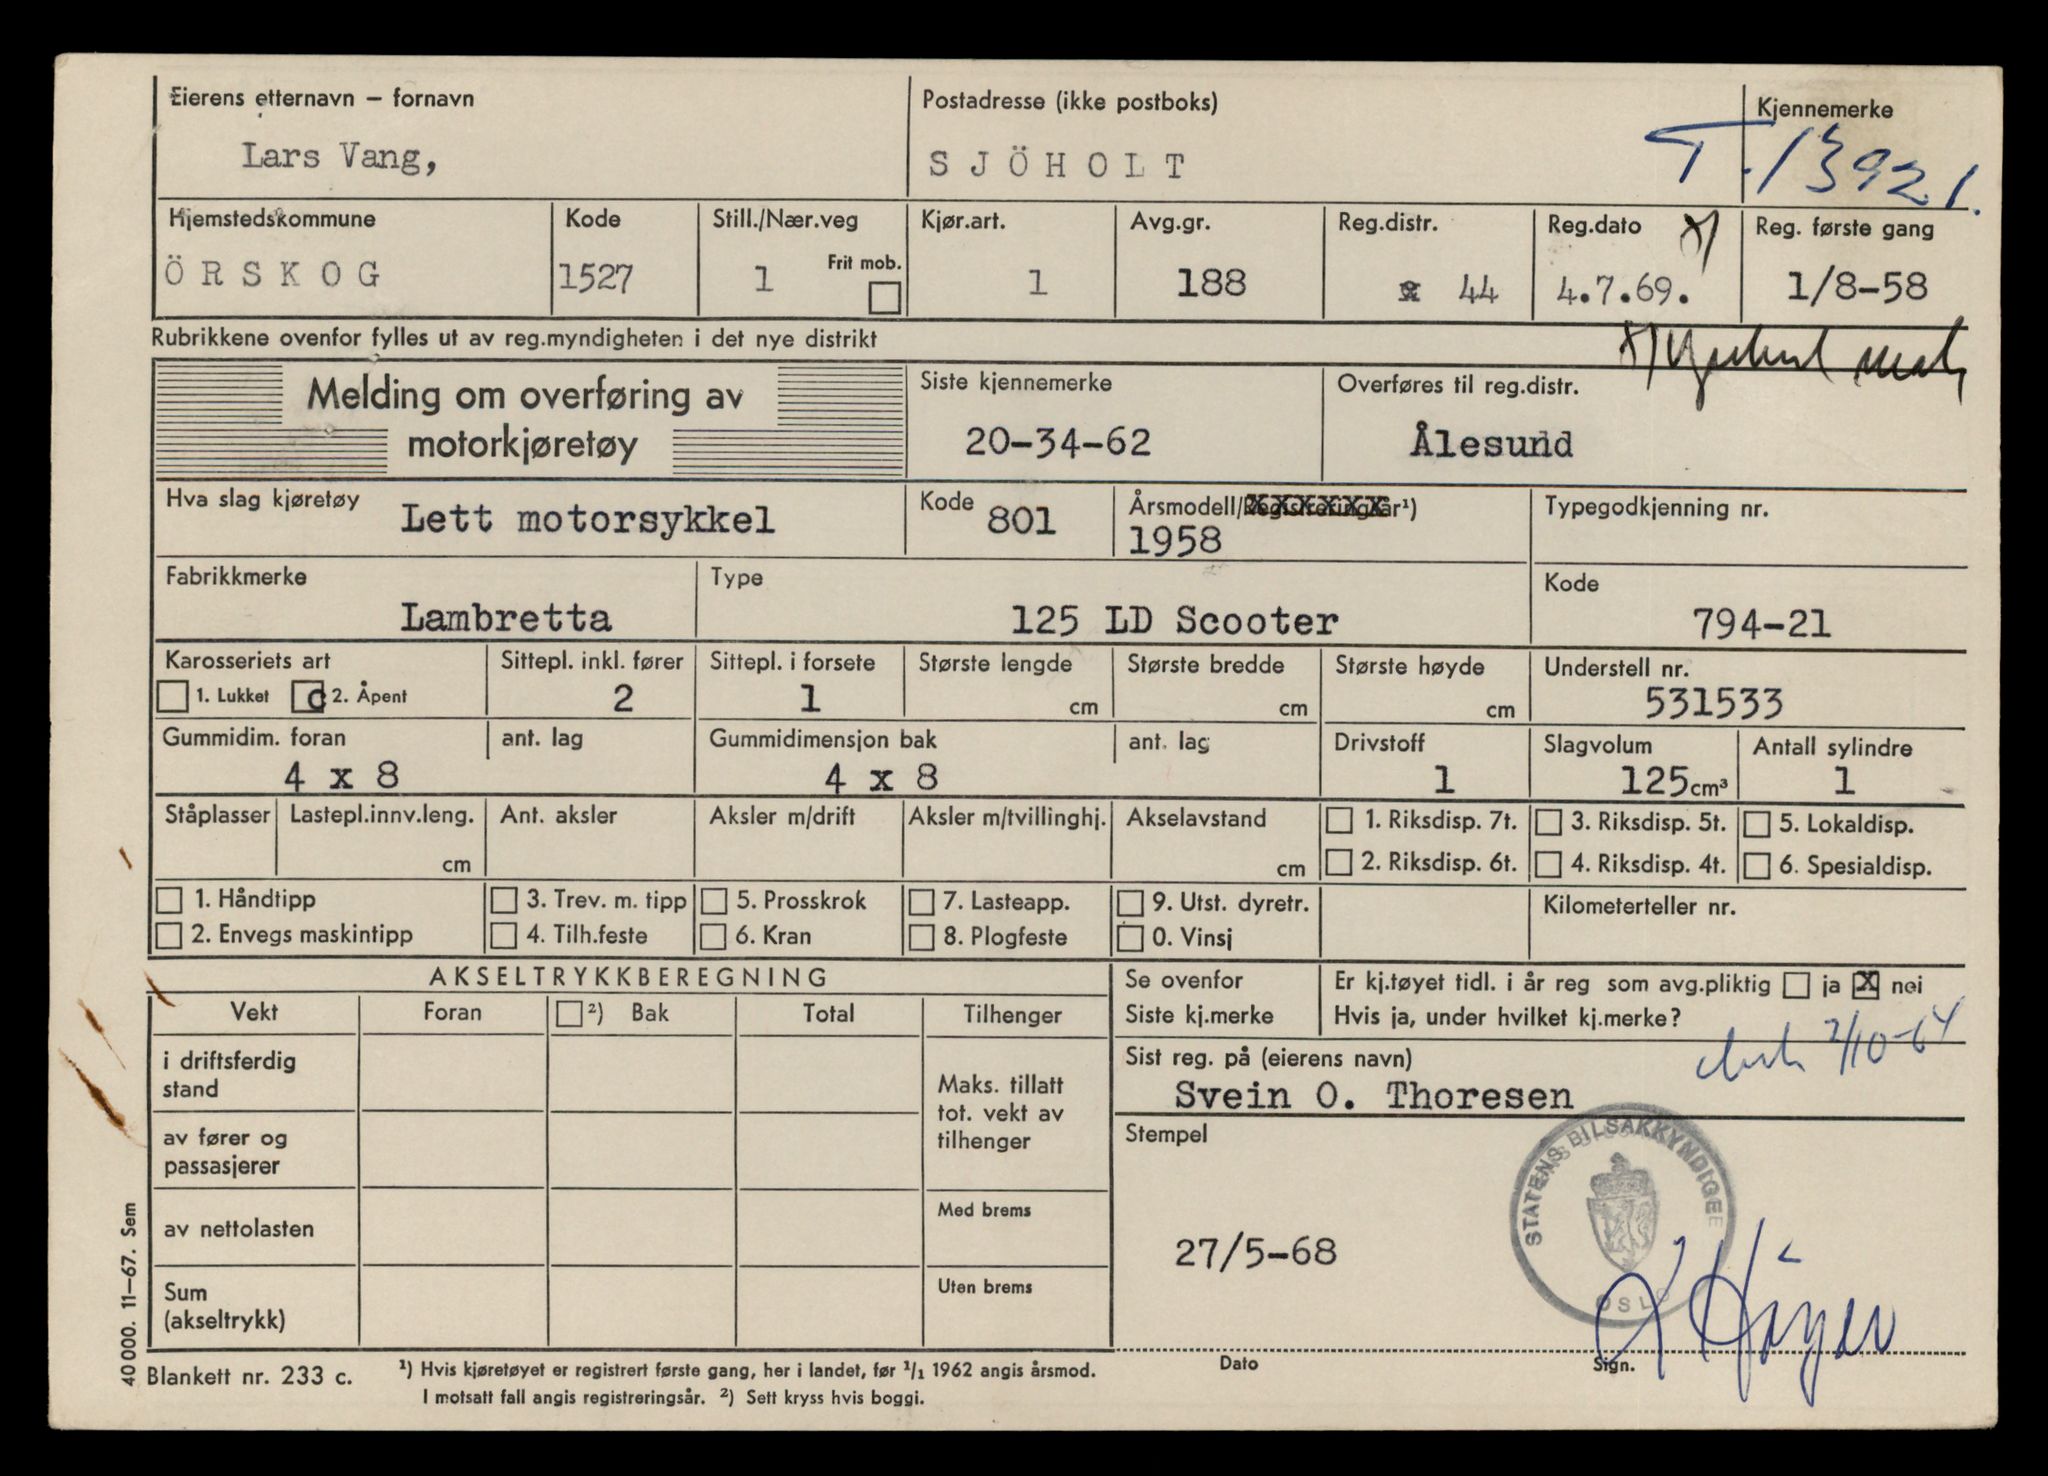 Eierens etternavn – fornavn
Lars Vang,
Postadresse (ikke postboks)
SJÖHOLT
Kjennemerke
T-13921.
Hjemstedskommune
ÖRSKOG
Kode
1527
Still./Nær.veg
1
Frit mob.
Kjør.art.
1
Avg.gr.
188
Reg.distr.
44
Reg.dato x)
4.7.69.
Reg. første gang
1/8-58
Rubrikkene ovenfor fylles ut av reg.myndigheten i det nye distrikt
x)
Melding om overføring av
motorkjøretøy
Siste kjennemerke
20-34-62
Overføres til reg.distr.
Ålesund
Hva slag kjøretøy
Lett motorsykkel
Kode
801
Årsmodell/Registreringsår¹)
1958
Typegodkjenning nr.
Fabrikkmerke
Lambretta
Type
125 LD Scooter
Kode
794-21
Karosseriets art
1. Lukket 2. Åpent
Sittepl. inkl. fører
2
Sittepl. i forsete
1
Største lengde
cm
Største bredde
cm
Største høyde
cm
Understell nr.
531533
Gummidim. foran
4 x 8
ant. lag
Gummidimensjon bak
4 x 8
ant. lag
Drivstoff
1
Slagvolum
125cm³
Antall sylindre
1
Ståplasser
Lastepl.innv.leng.
cm
Ant. aksler
Aksler m/drift
Aksler m/tvillinghj.
Akselavstand
cm
1. Riksdisp. 7t. 3. Riksdisp. 5t. 5. Lokaldisp.
2. Riksdisp. 6t. 4. Riksdisp. 4t. 6. Spesialdisp.
1. Håndtipp 3. Trev. m. tipp 5. Prosskrok 7. Lasteapp. 9. Utst. dyretr.
2. Envegs maskintipp 4. Tilh.feste 6. Kran 8. Plogfeste 0. Vinsj
Kilometerteller nr.
AKSELTRYKKBEREGNING
Se ovenfor
Siste kj.merke
Er kj.tøyet tidl. i år reg som avg.pliktig ja X nei
Hvis ja, under hvilket kj.merke?
2/10-64
Vekt Foran ²) Bak Total Tilhenger
i driftsferdig
stand
av fører og
passasjerer
av nettolasten
Sum
(akseltrykk)
Maks. tillatt
tot. vekt av
tilhenger
Med brems
Uten brems
Sist reg. på (eierens navn)
Svein O. Thoresen
Stempel
STATENS BILSAKKYNDIGE
OSLO
27/5-68
Dato
Sign.
40000. 11–67. Sem
Blankett nr. 233 c.
¹) Hvis kjøretøyet er registrert første gang, her i landet, før 1/1 1962 angis årsmod.
I motsatt fall angis registreringsår. ²) Sett kryss hvis boggi.